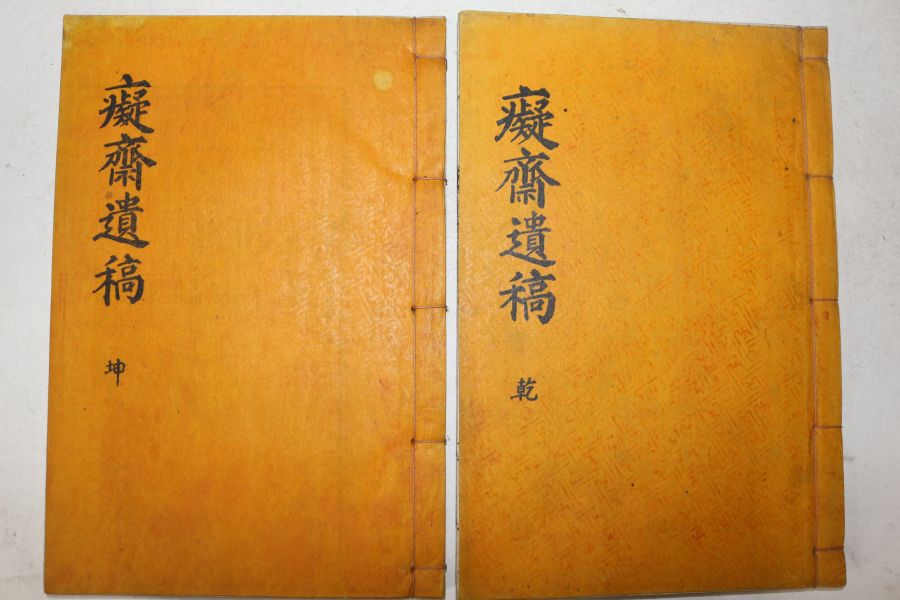 癡齋遺稿
乾
癡齋遺稿
坤